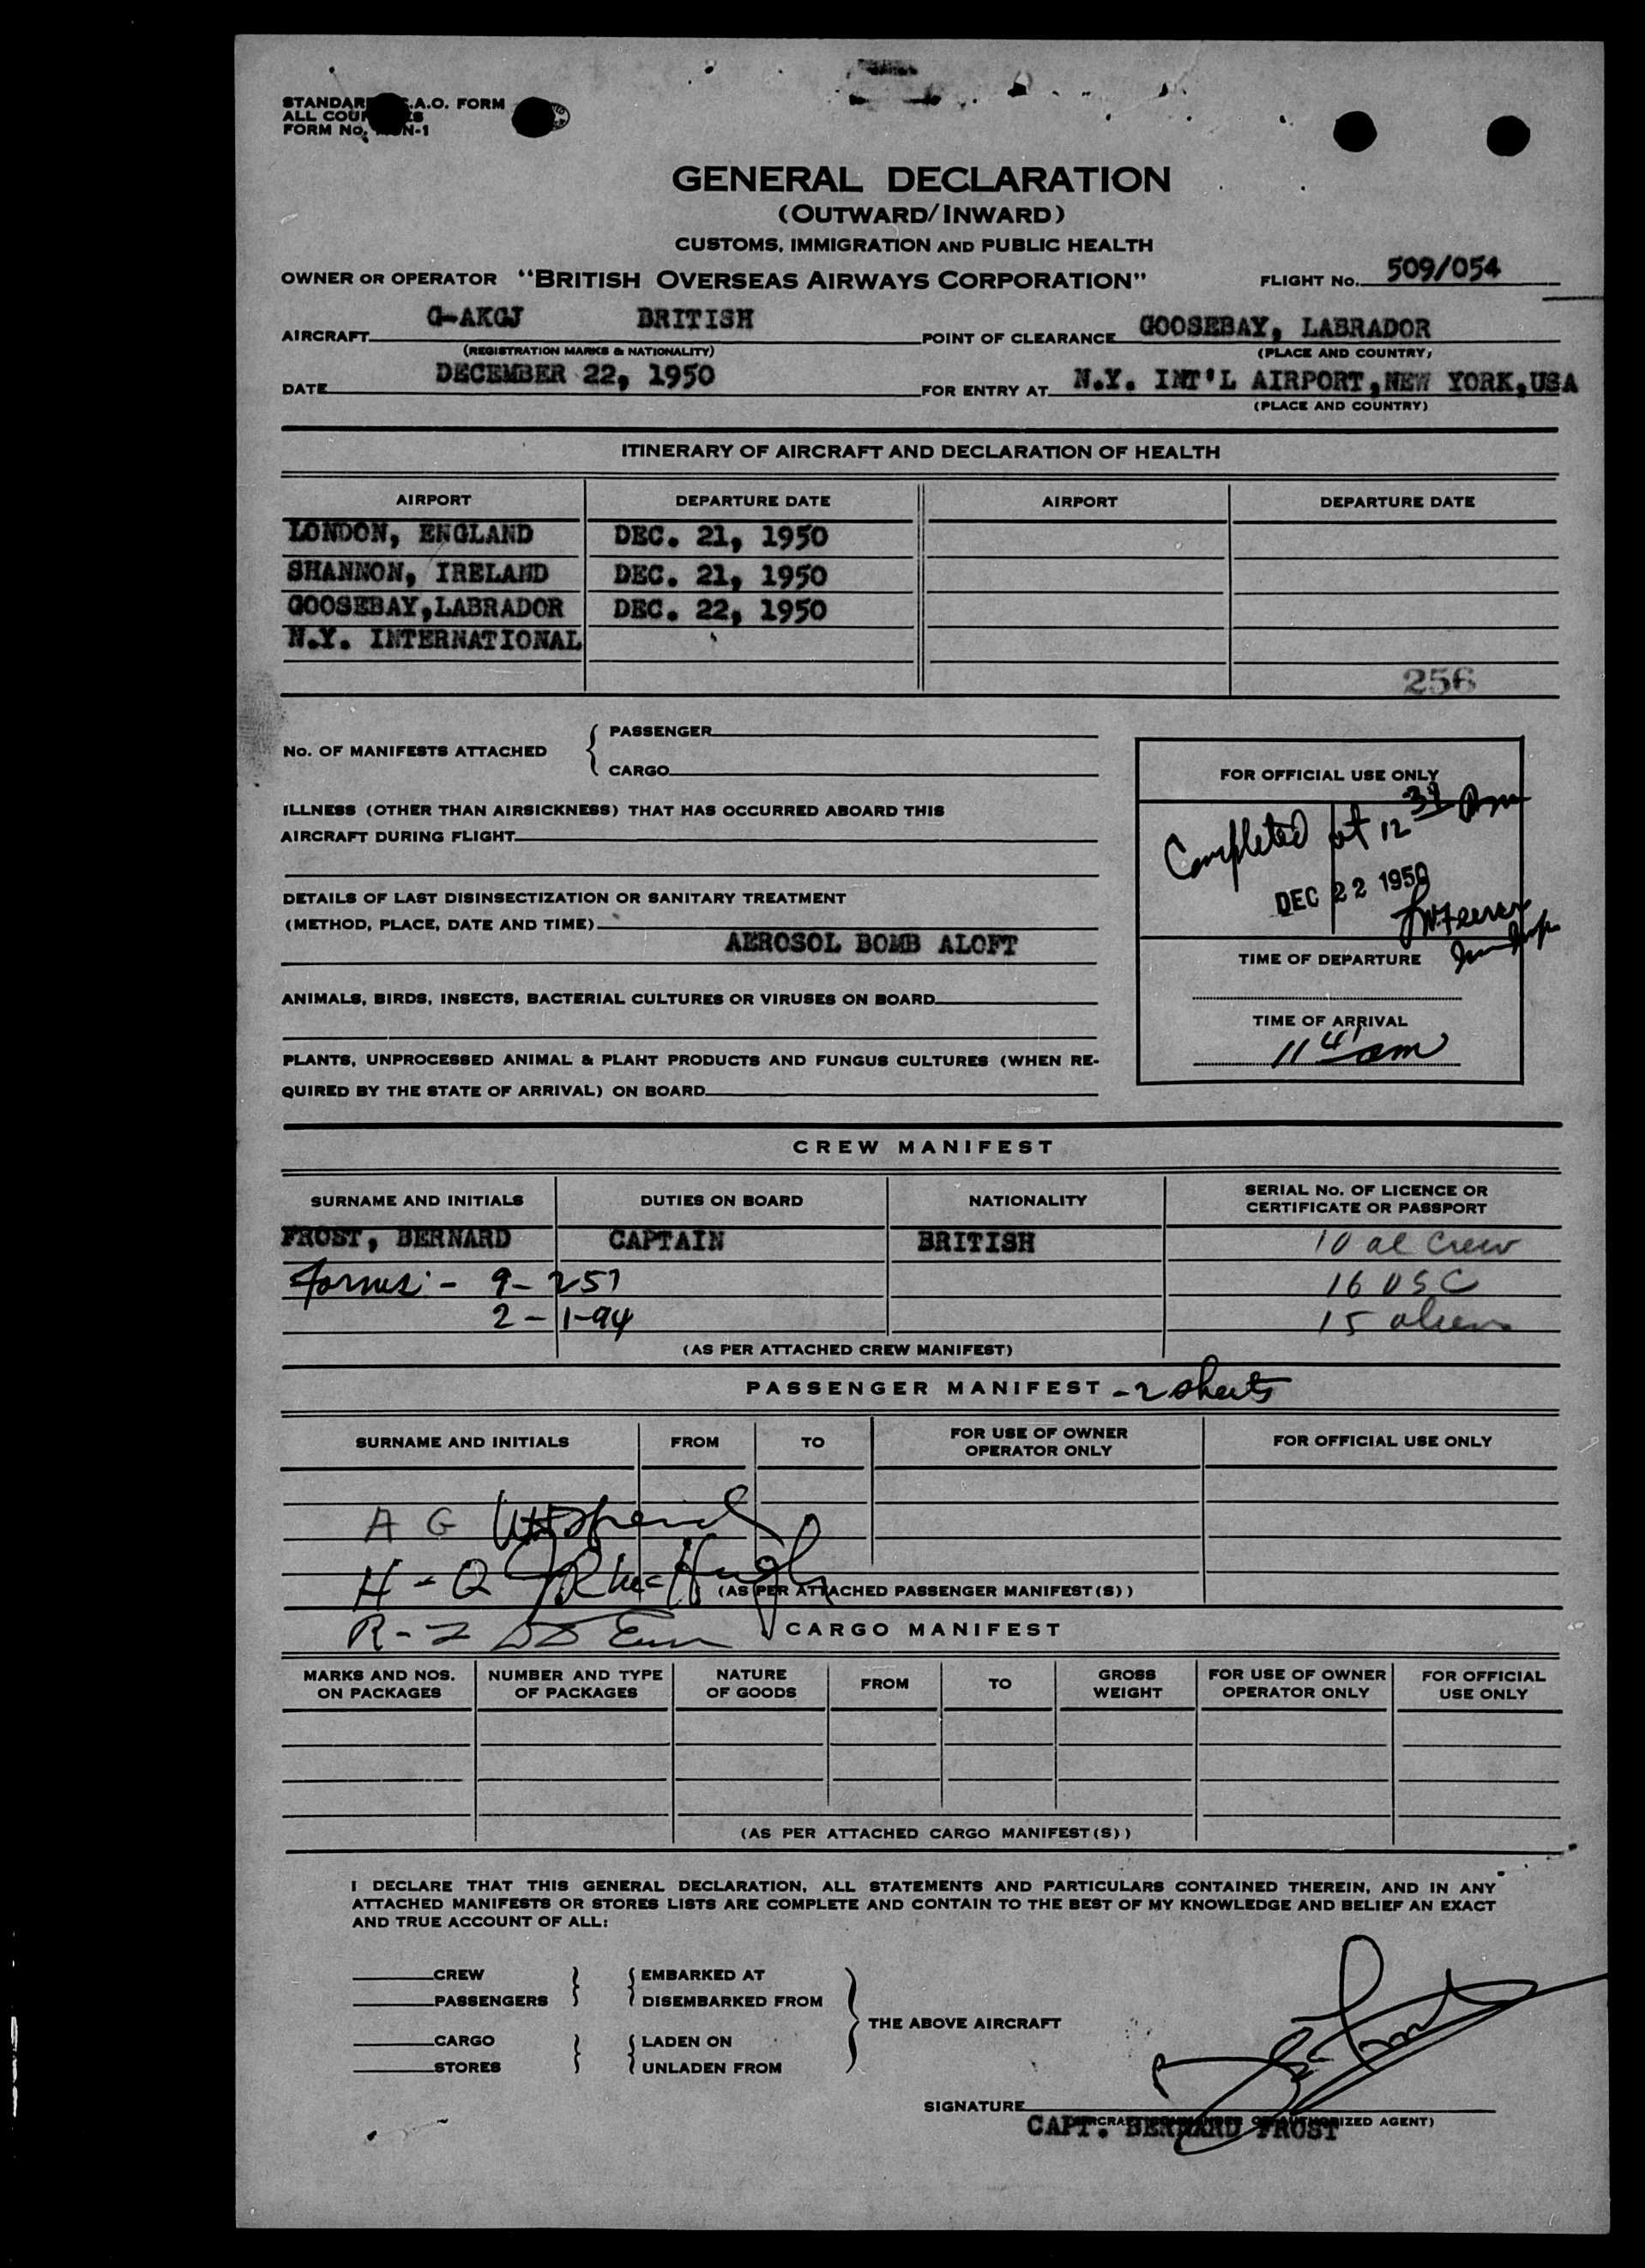 STANDARD .A.O. FORM
ALL COU ES
FORM No. N-1
GENERAL DECLARATION
(OUTWARD/INWARD)
CUSTOMS, IMMIGRATION AND PUBLIC HEALTH
OWNER OR OPERATOR "BRITISH OVERSEAS AIRWAYS CORPORATION" FLIGHT No. 509/054
AIRCRAFT G-AKGJ BRITISH POINT OF CLEARANCE GOOSEBAY, LABRADOR
(REGISTRATION MARKS & NATIONALITY) (PLACE AND COUNTRY)
DATE DECEMBER 22, 1950 FOR ENTRY AT N.Y. INT'L AIRPORT, NEW YORK, USA
(PLACE AND COUNTRY)
ITINERARY OF AIRCRAFT AND DECLARATION OF HEALTH
AIRPORT DEPARTURE DATE AIRPORT DEPARTURE DATE
LONDON, ENGLAND DEC. 21, 1950
SHANNON, IRELAND DEC. 21, 1950
GOOSEBAY, LABRADOR DEC. 22, 1950
N.Y. INTERNATIONAL
256
No. OF MANIFESTS ATTACHED { PASSENGER
CARGO
FOR OFFICIAL USE ONLY
Completed at 12 39 pm
DEC 22 1950
ILLNESS (OTHER THAN AIRSICKNESS) THAT HAS OCCURRED ABOARD THIS
AIRCRAFT DURING FLIGHT
DETAILS OF LAST DISINSECTIZATION OR SANITARY TREATMENT
(METHOD, PLACE, DATE AND TIME)
AEROSOL BOMB ALOFT
TIME OF DEPARTURE
ANIMALS, BIRDS, INSECTS, BACTERIAL CULTURES OR VIRUSES ON BOARD
TIME OF ARRIVAL
11 41 am
PLANTS, UNPROCESSED ANIMAL & PLANT PRODUCTS AND FUNGUS CULTURES (WHEN RE-
QUIRED BY THE STATE OF ARRIVAL) ON BOARD
CREW MANIFEST
SURNAME AND INITIALS DUTIES ON BOARD NATIONALITY SERIAL No. OF LICENCE OR
CERTIFICATE OR PASSPORT
FROST, BERNARD CAPTAIN BRITISH 10 al Crew
Forms:- 9-257 16 USC
2-I-94 15 aliens
(AS PER ATTACHED CREW MANIFEST)
PASSENGER MANIFEST - 2 sheets
SURNAME AND INITIALS FROM TO FOR USE OF OWNER
OPERATOR ONLY FOR OFFICIAL USE ONLY
A G
H - Q
(AS PER ATTACHED PASSENGER MANIFEST(S))
R-Z
CARGO MANIFEST
MARKS AND NOS.
ON PACKAGES NUMBER AND TYPE
OF PACKAGES NATURE
OF GOODS FROM TO GROSS
WEIGHT FOR USE OF OWNER
OPERATOR ONLY FOR OFFICIAL
USE ONLY
(AS PER ATTACHED CARGO MANIFEST(S))
I DECLARE THAT THIS GENERAL DECLARATION, ALL STATEMENTS AND PARTICULARS CONTAINED THEREIN, AND IN ANY
ATTACHED MANIFESTS OR STORES LISTS ARE COMPLETE AND CONTAIN TO THE BEST OF MY KNOWLEDGE AND BELIEF AN EXACT
AND TRUE ACCOUNT OF ALL:
CREW } { EMBARKED AT
PASSENGERS } { DISEMBARKED FROM
THE ABOVE AIRCRAFT
CARGO } { LADEN ON
STORES } { UNLADEN FROM
SIGNATURE
(AIRCRAFT COMMANDER OR AUTHORIZED AGENT)
CAPT. BERNARD FROST